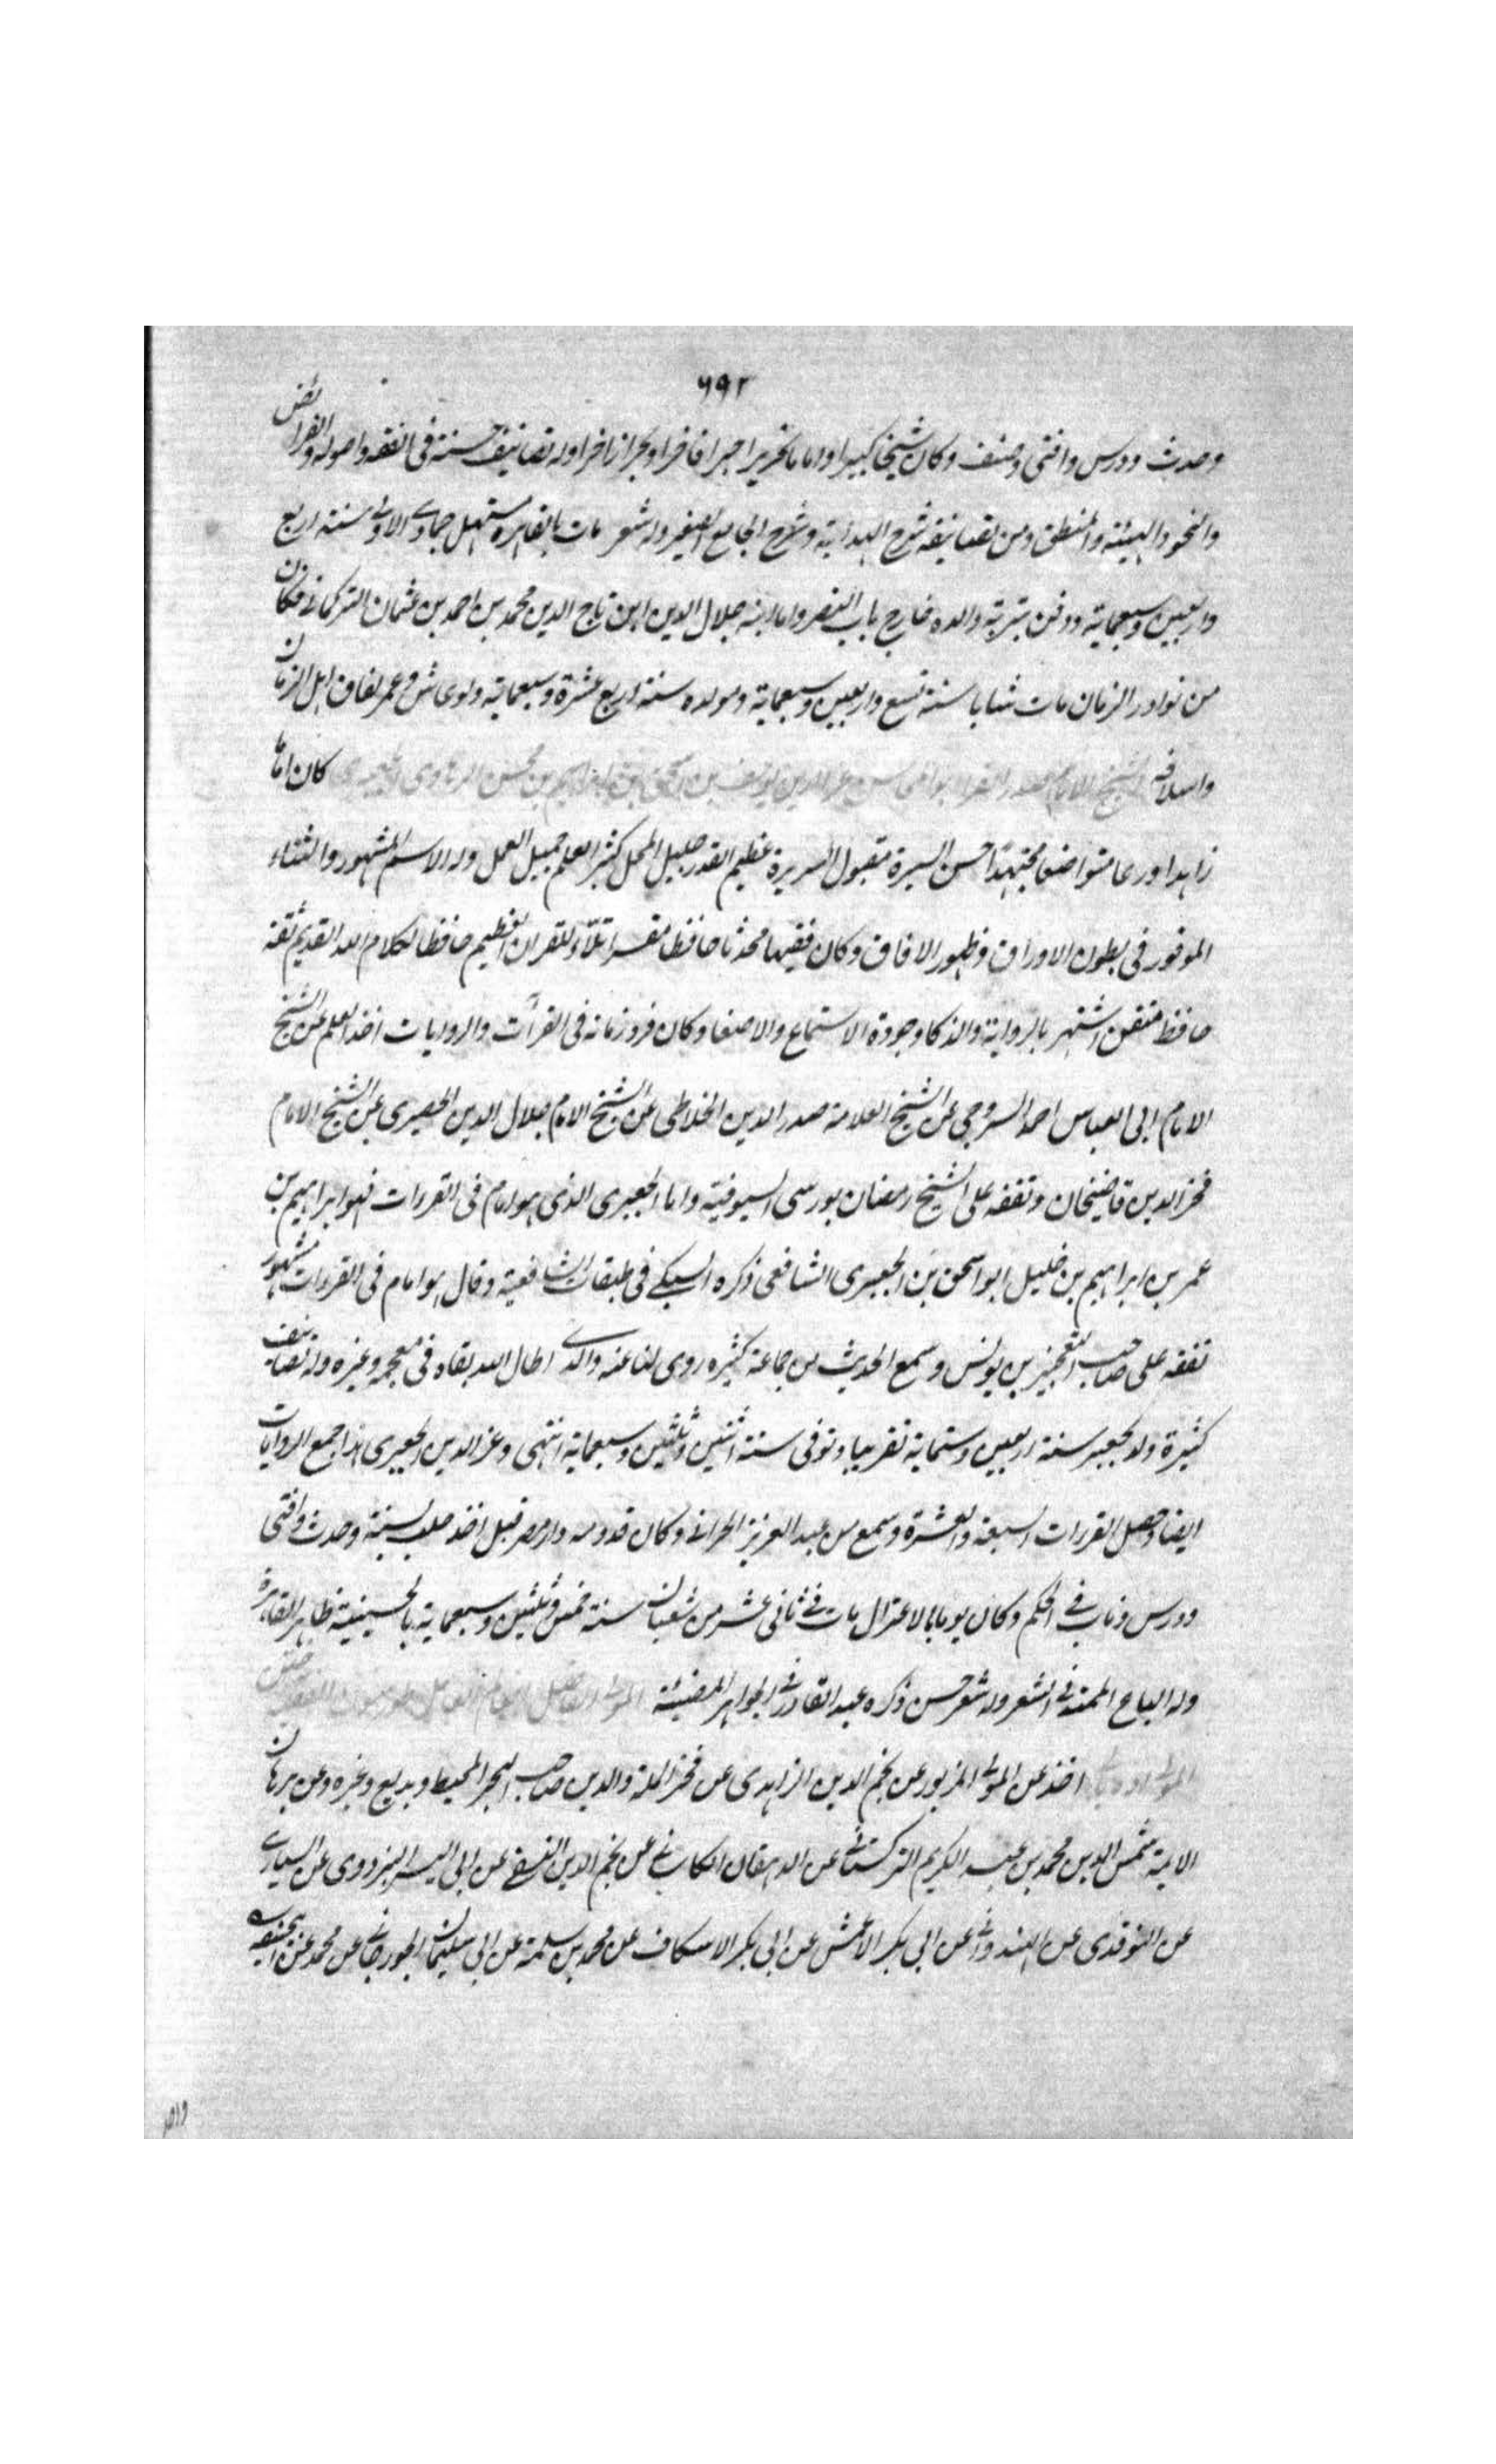 ٦٩٢
وحدث ودرس وافتى وصنف وكان شيخا كبيرا واماما نحريرا حبرا فاخرا وبحرا زاخرا وله تصانيف حسنة فى الفقه واصوله والفرائض
والنحو والهيئة والمنطق ومن تصانيفه شرح الهداية وشرح الجامع الصغير وله شعر مات بالقاهرة مستهل جمادى الاولى سنة اربع
واربعين وسبعماية ودفن بتربة والده خارج باب النصر واما ابنه جلال الدين ابن تاج الدين محمد بن احمد بن عثمان التركمانى فكان
من نوادر الزمان مات شابا سنة تسع واربعين وسبعماية ومولده سنة اربع عشرة وسبعماية ولو عاش وعمر لفاق اهل الزمان
واسلافه الشيخ الامام صدر القراء ابو المحاسن عز الدين يوسف بن اسحق بن ابراهيم بن محسن كان اماما
زاهدا ورعا متواضعا مجتهدا حسن السيرة مقبول السريرة عظيم القدر جليل المحل كثير العلم جميل العمل وله الاسم المشهور والثناء
الموفور فى بطون الاوراق وظهور الافاق وكان فقيها محدثا حافظا مقرا تلاّء للقران العظيم حافظا لكلام الله القديم ثقة
حافظ متقن اشتهر بالرواية والذكا وجودة الاستماع والاصغا وكان فرد زمانه فى القرآت والروايات اخذ العلم عن الشيخ
الامام ابى العباس احمد السروجى عن الشيخ العلامة صدر الدين الخلاطى عن الشيخ الامام جلال الدين الحصيرى عن الشيخ الامام
فخر الدين قاضيخان وتفقه على الشيخ رمضان بورسى السيوفية واما الجعبرى الذى هو امام فى القرءات فهو ابراهيم بن
عمر بن ابراهيم بن خليل ابو اسحق بن الجعبرى الشافعى ذكره السبكى فى طبقات الشافعية وقال هو امام فى القرءات مشهور
تفقه على صاحب التعجيز بن يونس وسمع الحديث من جماعة كثيره روى لنا عنه والدى اطال الله بقاه فى معجمه وغيره وله تصانيف
كثيرة ولد بجعبر سنة اربعين وستماية تقريبا وتوفى سنة اثنتين وثلثين وسبعماية انتهى وعز الدين الجعبرى هذا جمع الروايات
ايضا وحصل القرءات السبعة والعشرة وسمع من عبد العزيز الحرانى وكان قدومه دار مصر قبل اخذ حلب بسنة وحدث وافتى
ودرس وناب فى الحكم وكان يوما بالاعتزال مات فى ثانى عشر من شعبان سنة خمس وثلثين وسبعماية بالحسينية ظاهر القاهرة
وله الباع الممتد فى الشعر وله شعر حسن ذكره عبد القادر فى الجواهر المضيئة المولى الفاضل
المولى اخذ عن المولى المزبور عن نجم الدين الزاهدى عن فخر الملة والدين صاحب البحر المحيط وبديع وغيره وعن برهان
الايمة شمس الدين محمد بن عبد الكريم التركستانى عن الدهقان الكاسانى عن نجم الدين النسفى عن ابى اليسر البزدوى عن السيارى
عن النوقدى عن الهندوانى عن ابى بكر الاعمش عن ابى بكر الاسكاف عن محمد بن سلمة عن ابى سليمان الجورجانى عن محمد عن ابى حنيفة